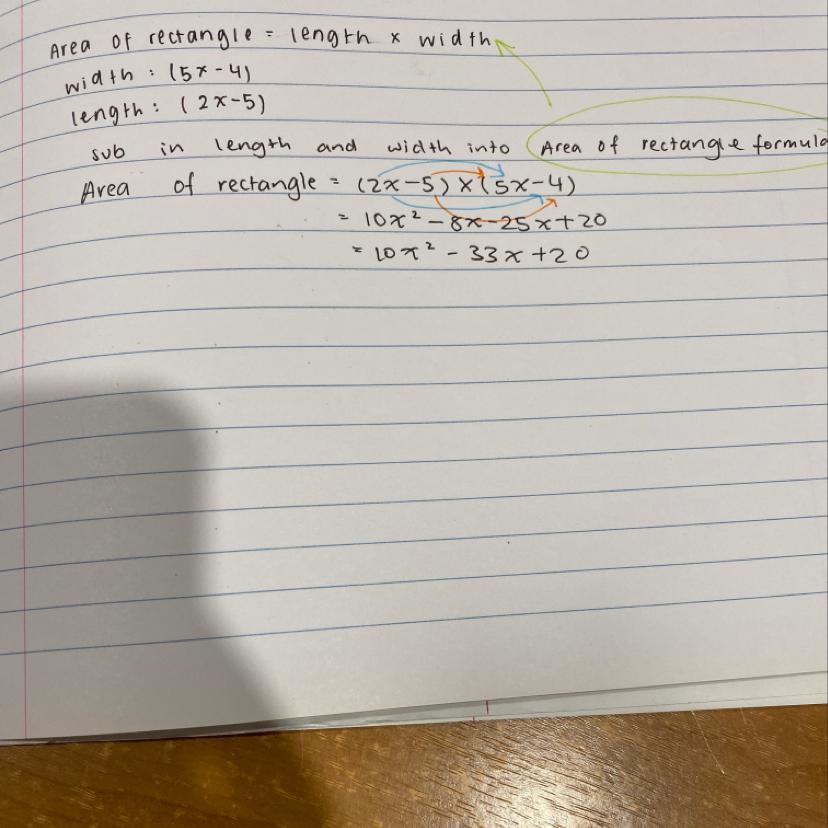 Area of rectangle = length x width
width : (5x-4)
length : (2x-5)
sub in length and width into Area of rectangle formula
Area of rectangle = (2x-5) x (5x-4)
= 10x² - 8x - 25x + 20
= 10x² - 33x + 20